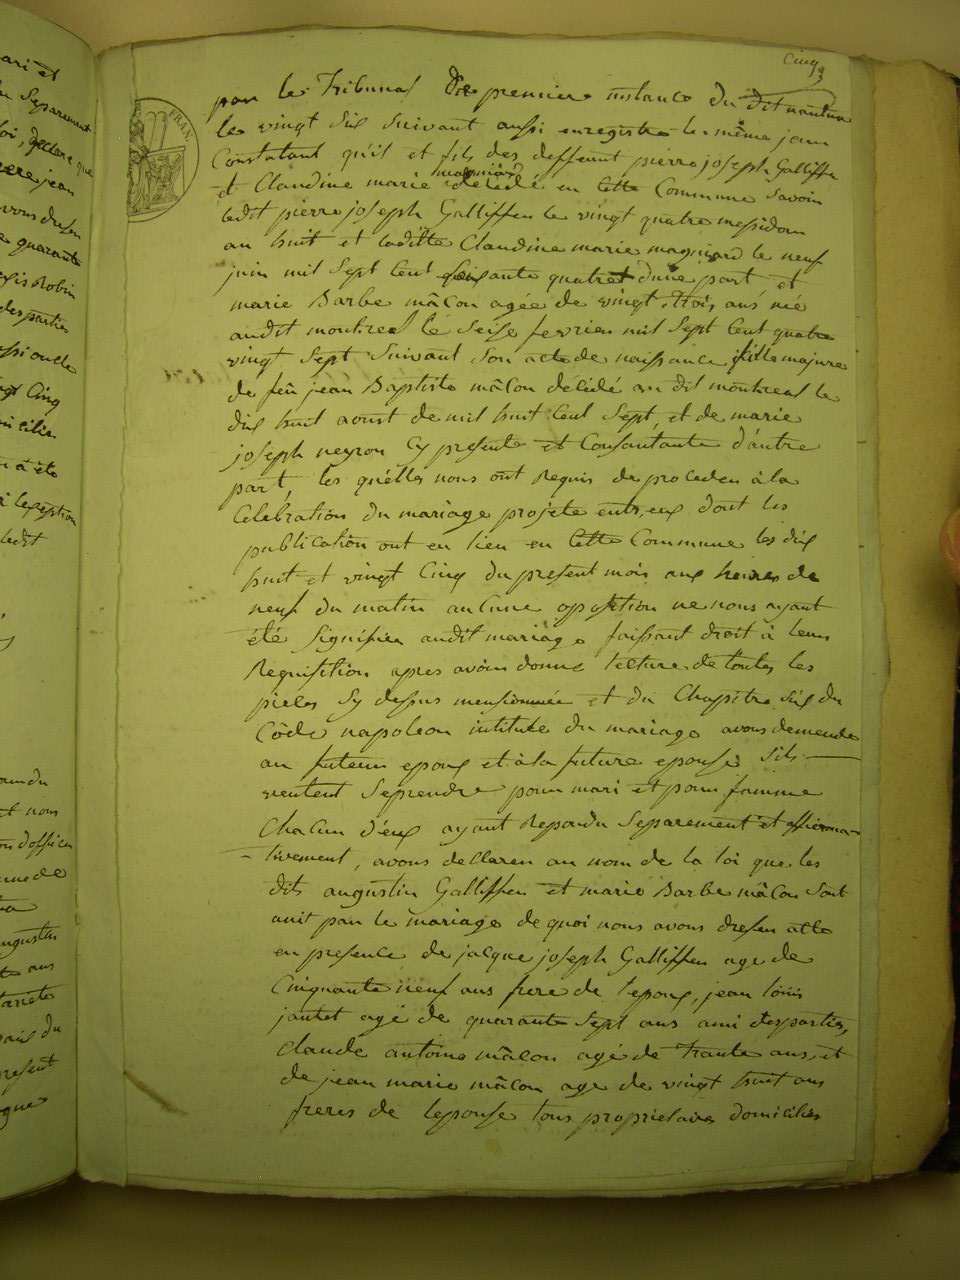 Cinq
par le Tribunal De premiere instance du dit nantua
le vingt six suivant aussi enregistré le même jour
Constatant qu'il et fils des deffunt pierre joseph Galliffen
et Claudine marie magniard décédé en Cette Commune Savoir
ledit pierre joseph Galliffen le vingt quatre messidor
an huit et laditte Claudine marie magniard le neuf
juin mil Sept Cent quatre d'une part et
marie Barbe mâcon agée de vingt trois ans née
audit montreal le Seise fevrier mil Sept Cent quatre
vingt Sept Suivant Son acte de naissance fille majure
de feû jean Baptiste mâcon décédé au dit montreal le
dix huit aoust de mil huit Cent Sept, et de marie
joseph neyron Cy presente et Consantante d'autre
part, les quélles nous ont Requis de proceder à la
Celebration du mariage projeté entr,eux dont les
publication ont eu lieu en Cette Commune les dix
huit et vingt Cinq du present mois aux heures de
neuf du matin aucune oposition ne nous ayant
été Signifier audit mariage faissant droit à leur
Requisition apres avoir donné lecture de toutes les
pieces Sy dessus mensionnée et du Chapitre Six du
Côde napoleon intitulé du mariage avons demende
au futeur epoux et à la future epouse Sils
veulent Seprendre pour mari et pour famme
Chacun d'eux ayant Repondu Separement et affirma-
tivement, avons declarer au nom de la loi que les
dits augustin Galliffen et marie Barbe mâcon Sont
unit par le mariage de quoi nous avons dresser acte
en presence de jacque joseph Galliffen age de
Cinquante neuf ans frere de l'epoux, jean louis
jantet agé de quarante Sept ans ami des parties,
Claude antoine mâcon agé de trante ans, et
de jean marie mâcon age de vingt huit ans
freres de lepouse tous proprietaires domiciliés